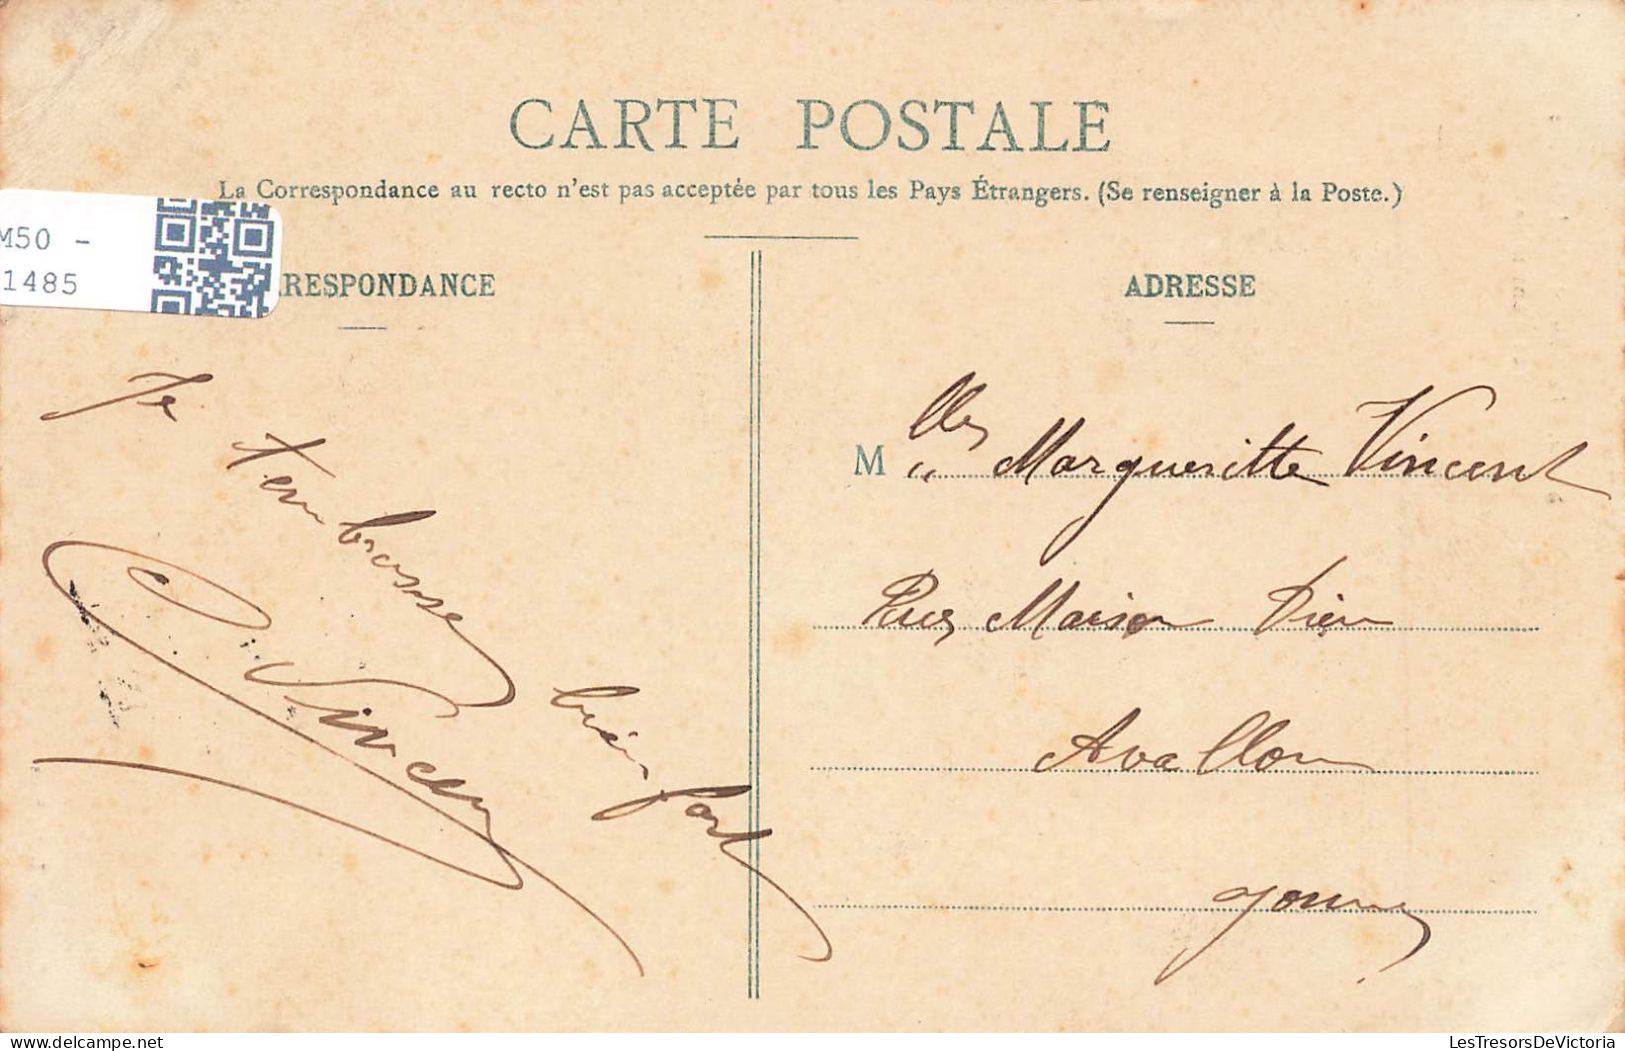 CARTE POSTALE
La Correspondance au recto n'est pas acceptée par tous les Pays Étrangers. (Se renseigner à la Poste.)
M50 -
1485
RESPONDANCE
ADRESSE
Je
t'embrasse
bien
fort
Vincent
M lles Margueritte Vincent
Rue Maison Dieu
Avallon
Yonne
LesTresorsDeVictoria